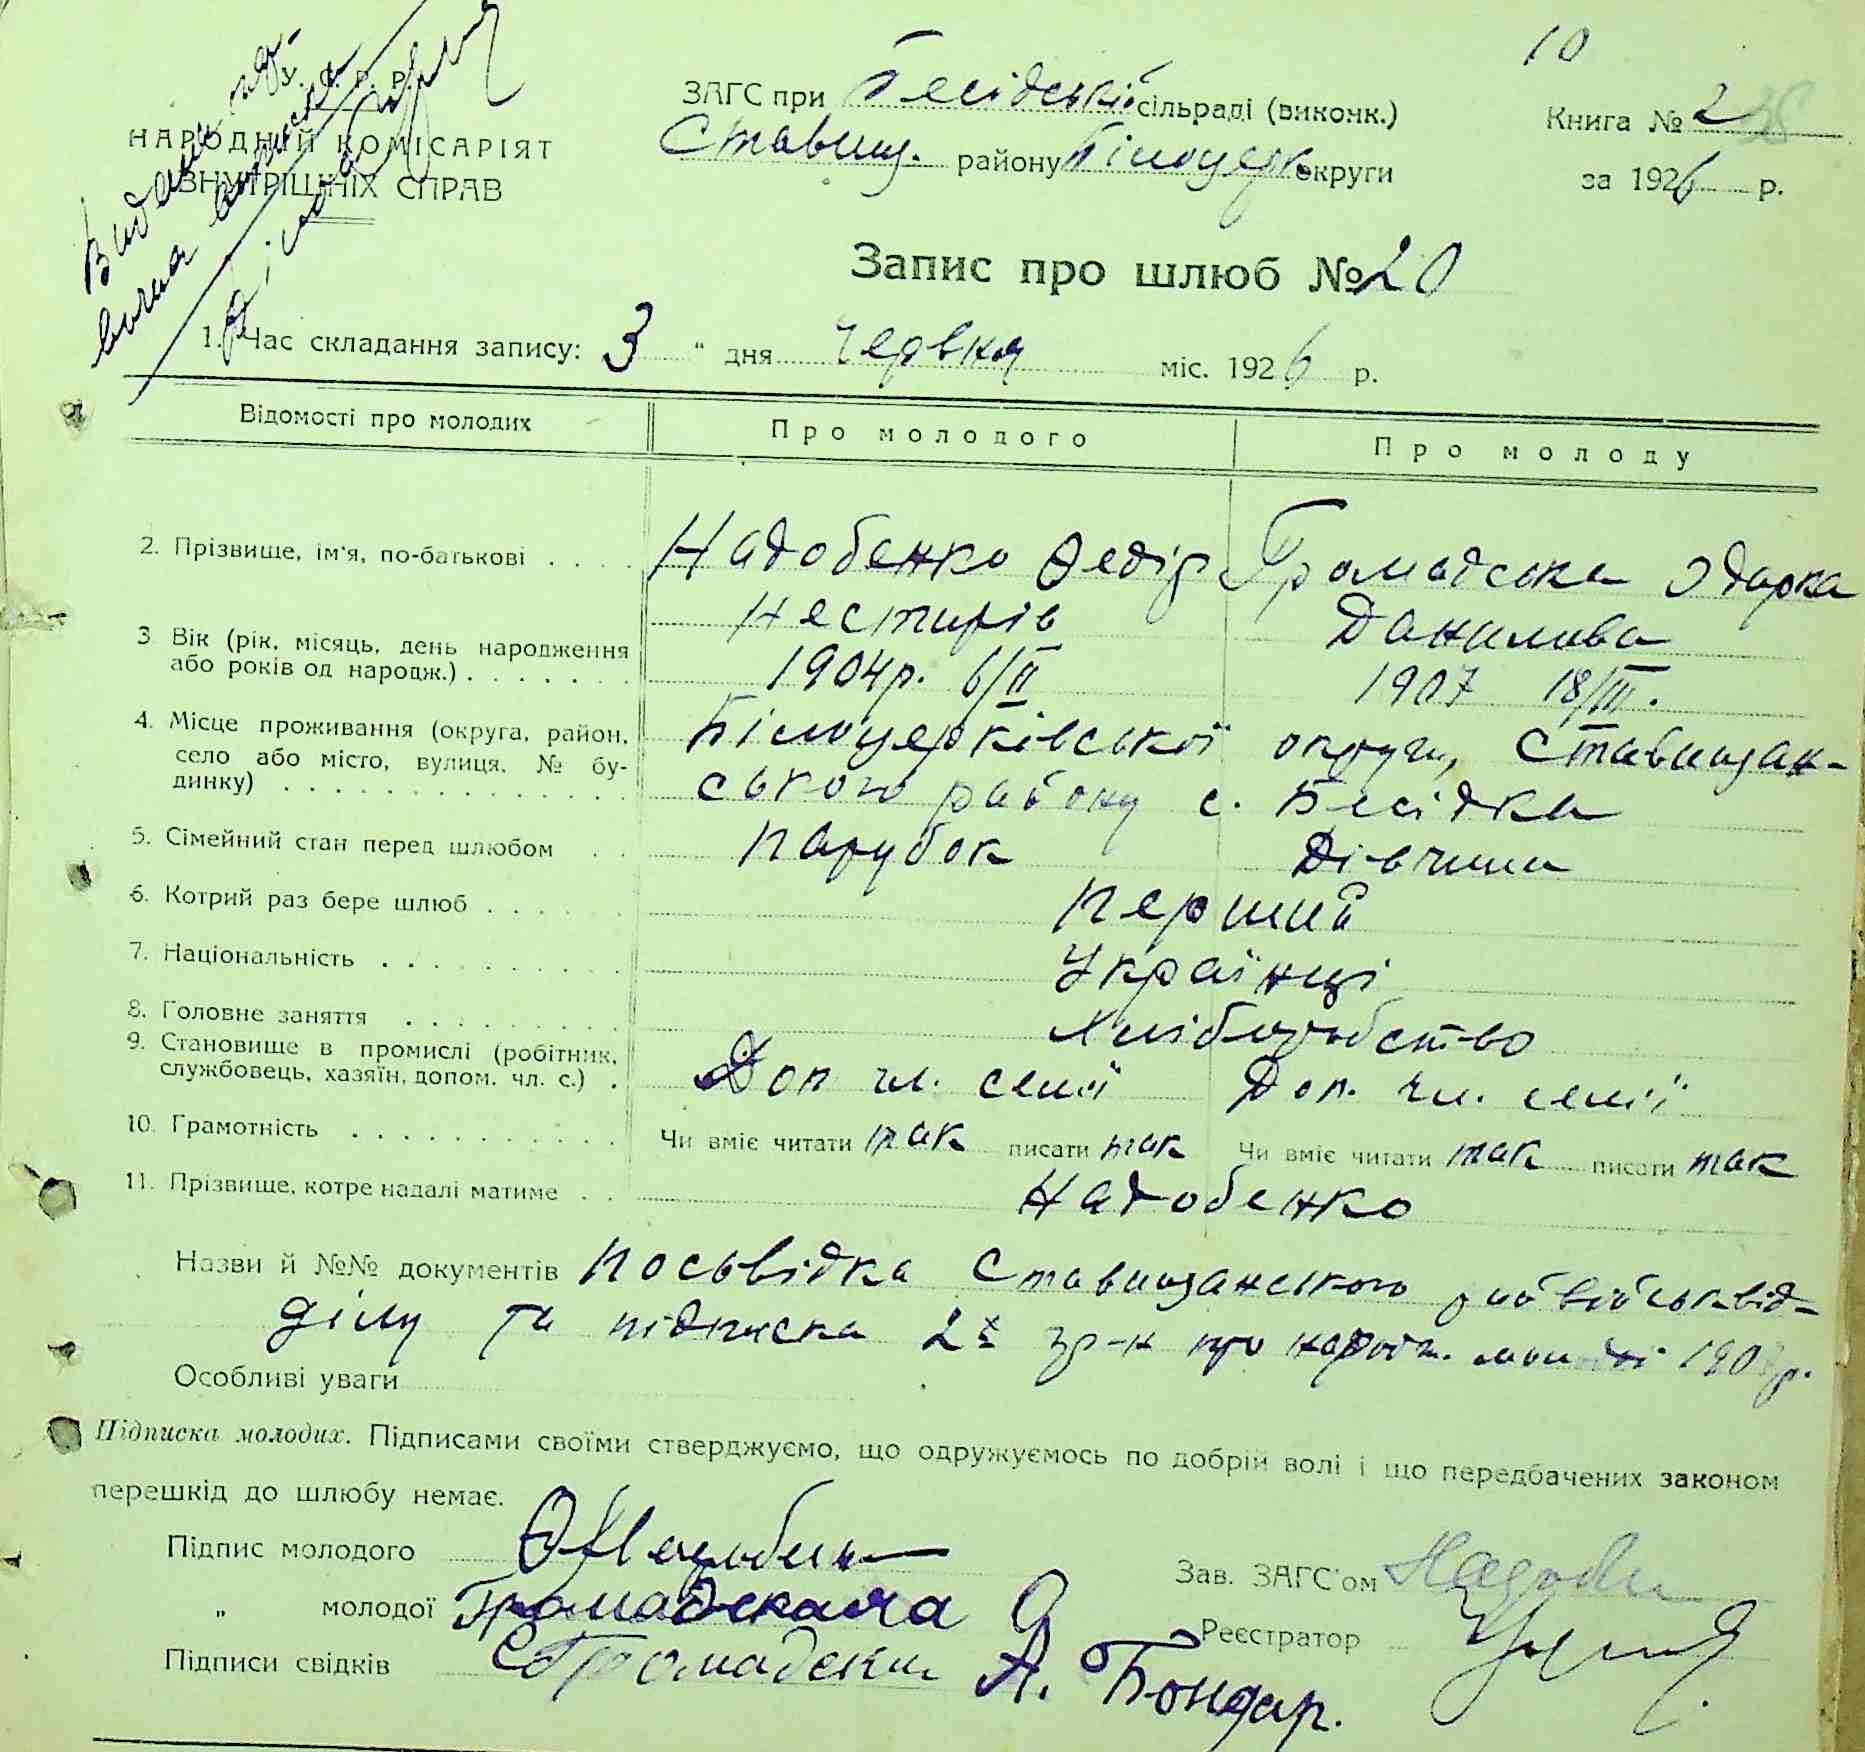 10
У. С. Р. Р.
НАРОДНИЙ КОМІСАРІЯТ
ВНУТРІШНІХ СПРАВ
ЗАГС при Бесідській сільраді (виконк.)
Ставищ. району Білоцерк округи
Книга № 2
за 1926 р.
Запис про шлюб № 20
1. Час складання запису: 3 " дня червня міс. 1926 р.
Відомості про молодих Про молодого Про молоду
2. Прізвище, ім'я, по-батькові . . . . Надобенко Ѳедір Громадська Одарка
Нестирів Данилова
3. Вік (рік, місяць, день народження
або років од народж.) . . . . . . . 1904р. 6/II 1907 18/III.
4. Місце проживання (округа, район, Білоцерківської округи, Ставищан-
село або місто, вулиця, № бу-
динку) . . . . . . . . . . . . . . ського району с. Бесідка
5. Сімейний стан перед шлюбом . . Парубок Дівчина
6. Котрий раз бере шлюб . . . . . . Перший
7. Національність . . . . . . . . . . Українці
8. Головне заняття . . . . . . . . . Хліборобство
9. Становище в промислі (робітник,
службовець, хазяїн, допом. чл. с.) . Доп чл. семї Доп. чл. семії
10. Грамотність . . . . . . . . . . . Чи вміє читати так писати так Чи вміє читати так писати так
11. Прізвище, котре надалі матиме . . Надобенко
Назви й №№ документів Посьвідка Ставищанського райвійськвід-
ділу та підписка 2х гр-н про народж. молодої 190
Особливі уваги
Підписка молодих. Підписами своїми стверджуємо, що одружуємось по добрій волі і що передбачених законом
перешкід до шлюбу немає.
Підпис молодого
Зав. ЗАГС'ом
" молодої Громадская О
Реєстратор
Підписи свідків С Громадски А. Бондар.